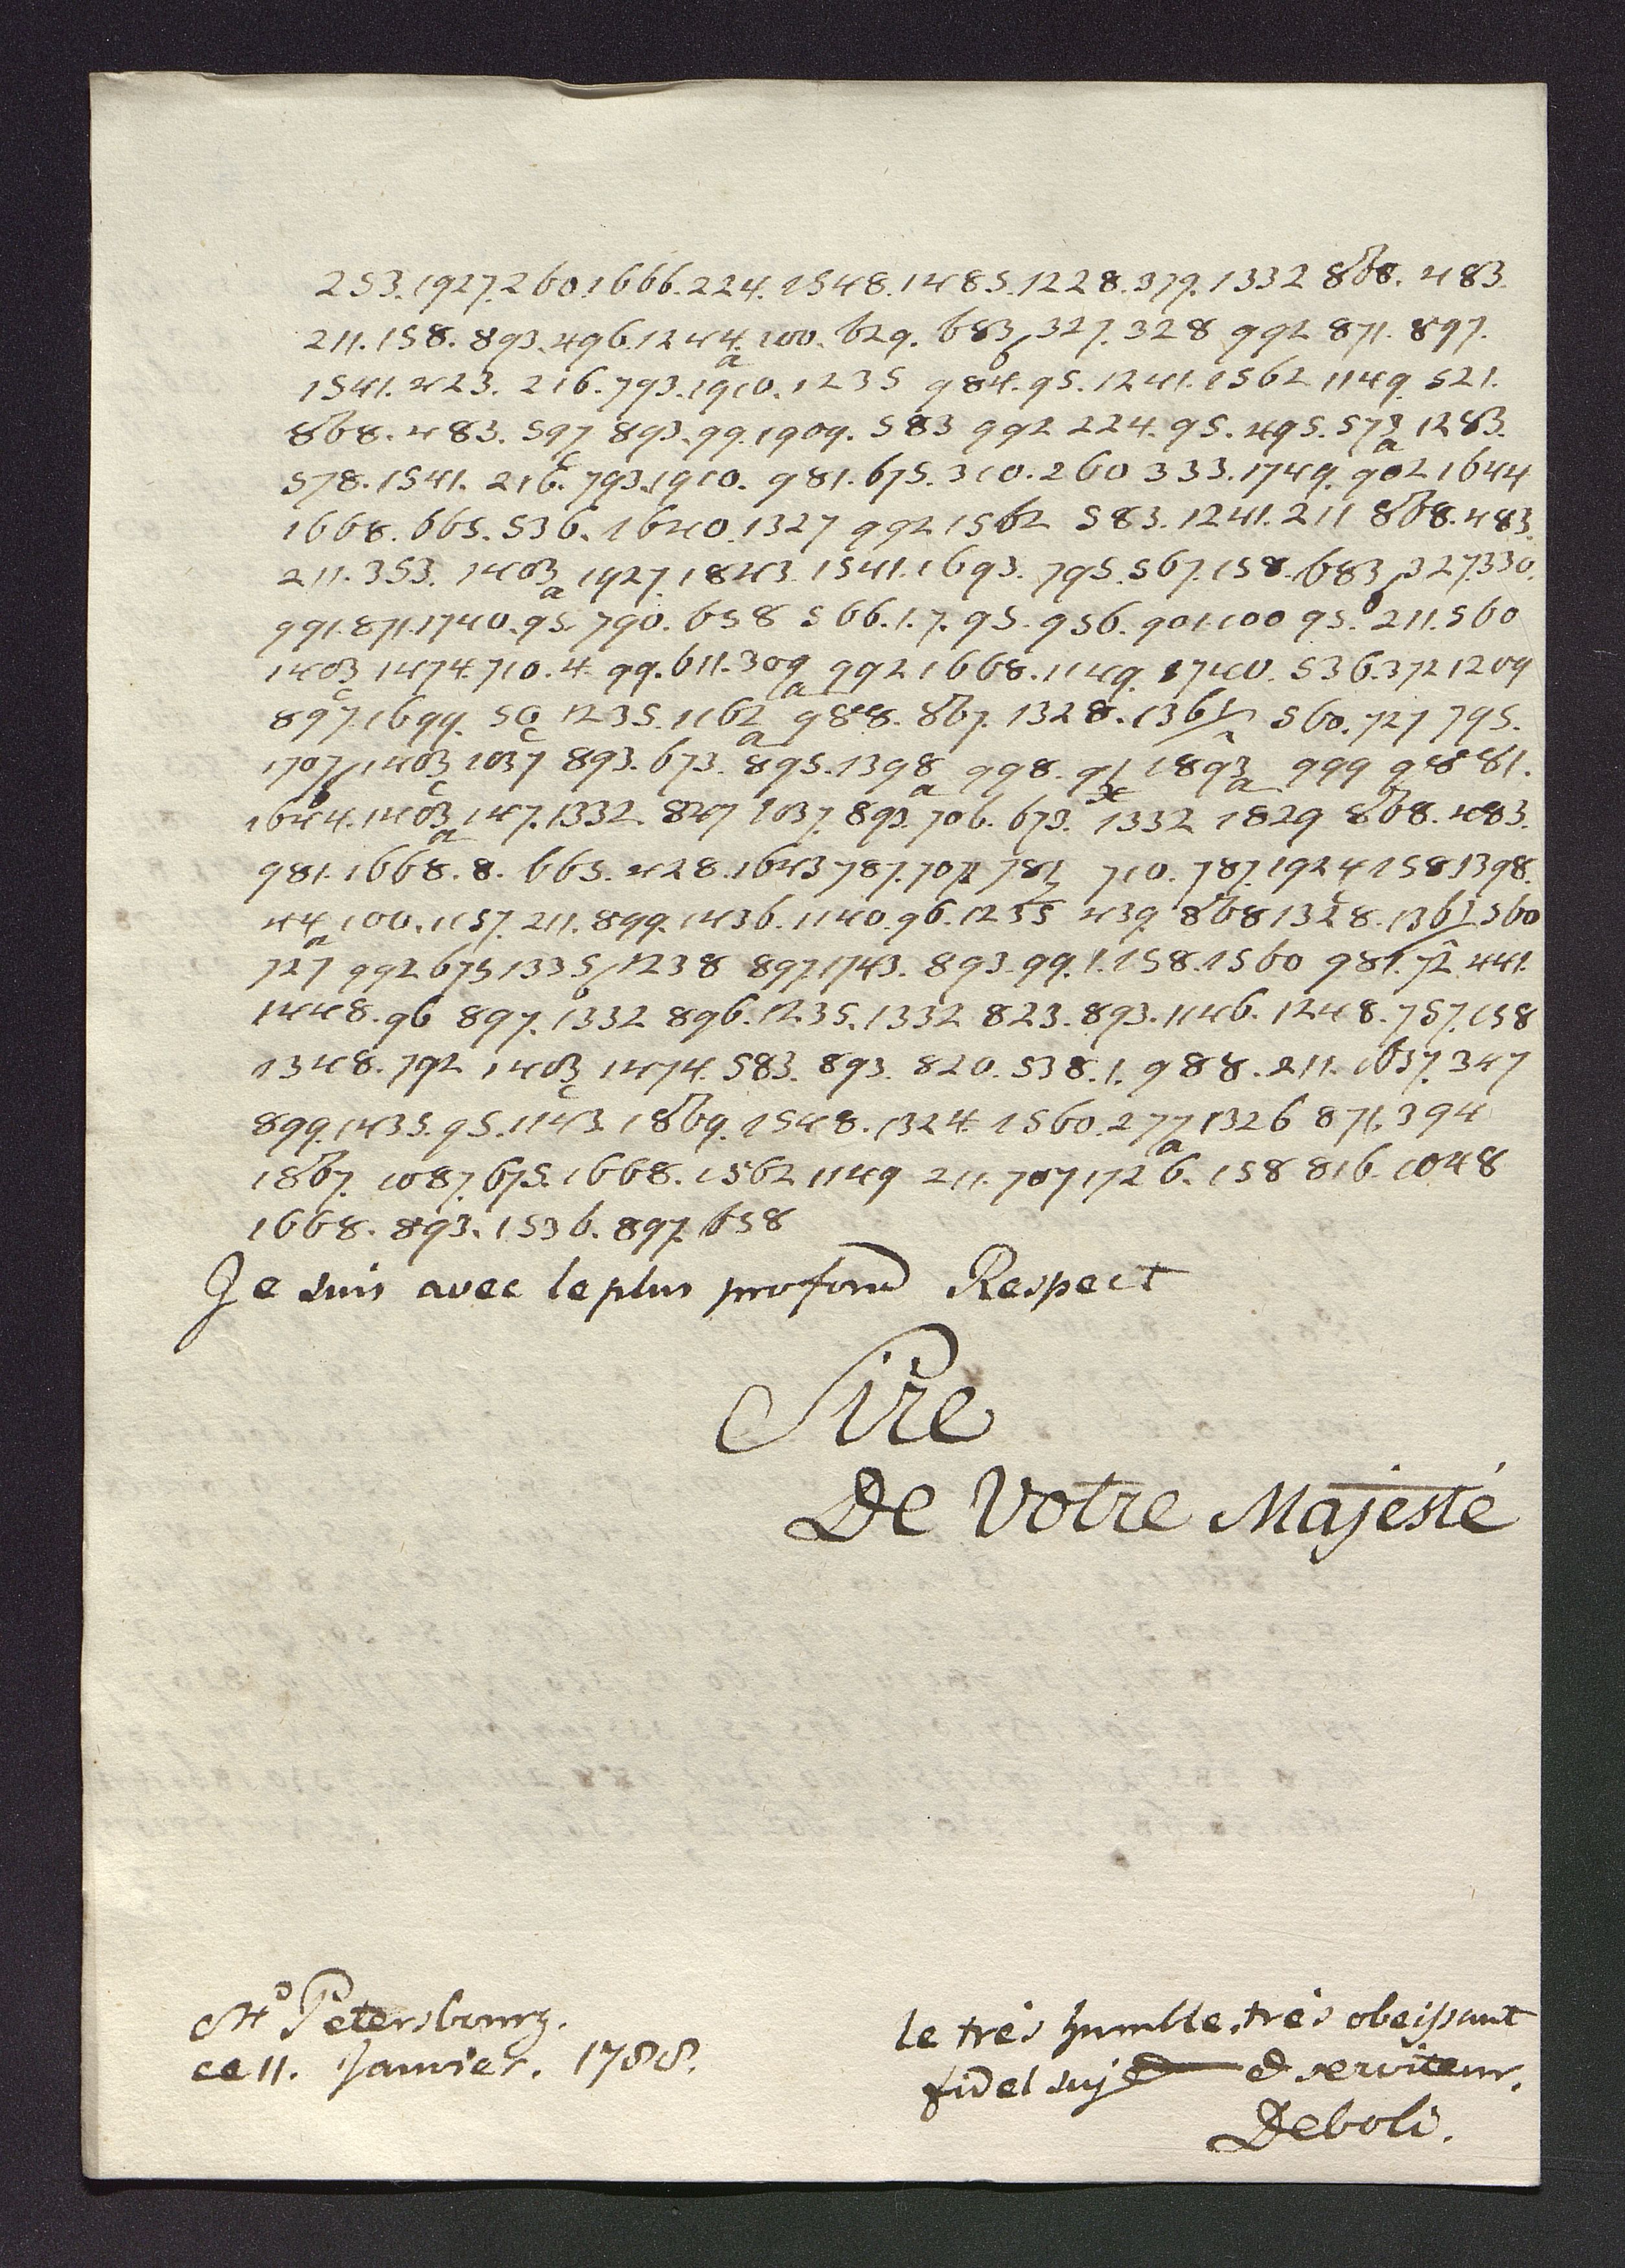 253. 1927. 260. 1666. 224. 1548. 1485. 1228. 379. 1332 868. 483.
211. 158. 893. 496. 1244. 100. 629. 683 327. 328 992 871. 897.
1541. 423. 216. 793. 1910. 1235 984. 95. 1241. 1562 1149. 521.
868. 483. 597 893. 99. 1909. 583 992 224. 95. 495. 573 1283.
578. 1541. 216. 793. 1910. 981. 675. 310. 260 333. 1749. 902 1644
1668. 665. 536. 1640. 1327 992 1562 583. 1241. 211 868. 483.
211. 353. 1403 1927. 1843. 1541. 1693. 795. 567. 158. 683 327. 330.
991. 871. 1740. 95. 790. 658 566. 1. 7. 95. 956. 901. 100 95. 211. 560
1403 1474. 710. 4. 99. 611. 309 992 1668. 1149. 1740. 536. 372 1209
897. 1699. 50 1235. 1162 988. 867. 1328. 1361 560. 727 795.
1707 1403 1037 893. 673. 895. 1398 998. 91 1893 999 98 81.
1644. 1403 147. 1332. 847 1037. 893. 706. 673. 1332 1829 868. 483.
981. 1668. 8. 665. 428. 1643 787. 707 781 710. 787. 1924 158. 1398.
44. 100. 1157. 211. 899. 1436. 1140. 96. 1235 439. 868 1328. 1361 560
727 992 675 1335 1238 897. 1743. 893. 99. 1. 158. 1560 981. 72. 441.
1448. 96 897. 1332 896. 1235. 1332 823. 893. 1146. 1248. 757. 158
1348. 792 1403 1474. 583. 893. 820. 538. 1. 988. 211. 1637. 347
899. 1435. 95. 1143. 1869. 1548. 1324. 1560. 277 1326 871. 394
1867. 1087. 675. 1668. 1562 1149 211. 707 1726. 158 816. 1048
1668. 893. 1536. 897. 658
Je suis avec le plus profond Respect
Sire
De Votre Majesté
St Petersbourg.
ce 11. Janvier. 1788.
le très humble, très obeissant
fidel sujet et serviteur.
Deboli.